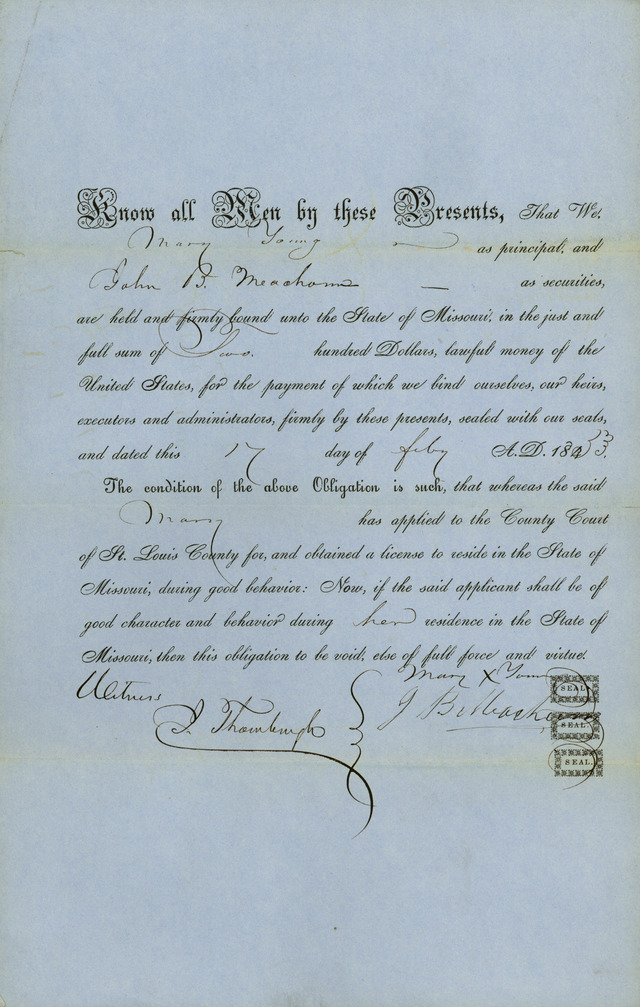 Know all Men by these Presents, That We,
Mary Young as principal, and
John B. Meachom — as securities,
are held and firmly bound unto the State of Missouri, in the just and
full sum of Two. hundred Dollars, lawful money of the
United States, for the payment of which we bind ourselves, our heirs,
executors and administrators, firmly by these presents, sealed with our seals,
and dated this 17 day of feby A.D. 1853.
The condition of the above Obligation is such, that whereas the said
Mary has applied to the County Court
of St. Louis County for, and obtained a license to reside in the State of
Missouri, during good behavior: Now, if the said applicant shall be of
good character and behavior during her residence in the State of
Missouri, then this obligation to be void, else of full force and virtue.
Witness Mary X Young SEAL.
J. Thornburgh J B Meachom SEAL.
SEAL.